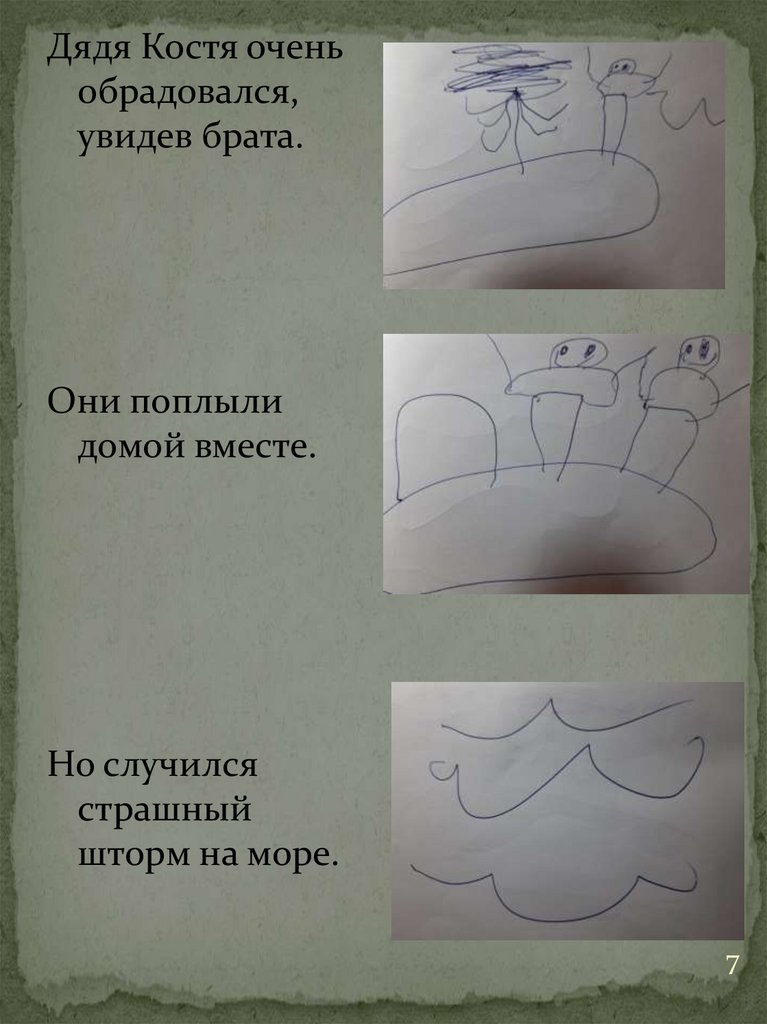 Дядя Костя очень
обрадовался,
увидев брата.
Они поплыли
домой вместе.
Но случился
страшный
шторм на море.
7